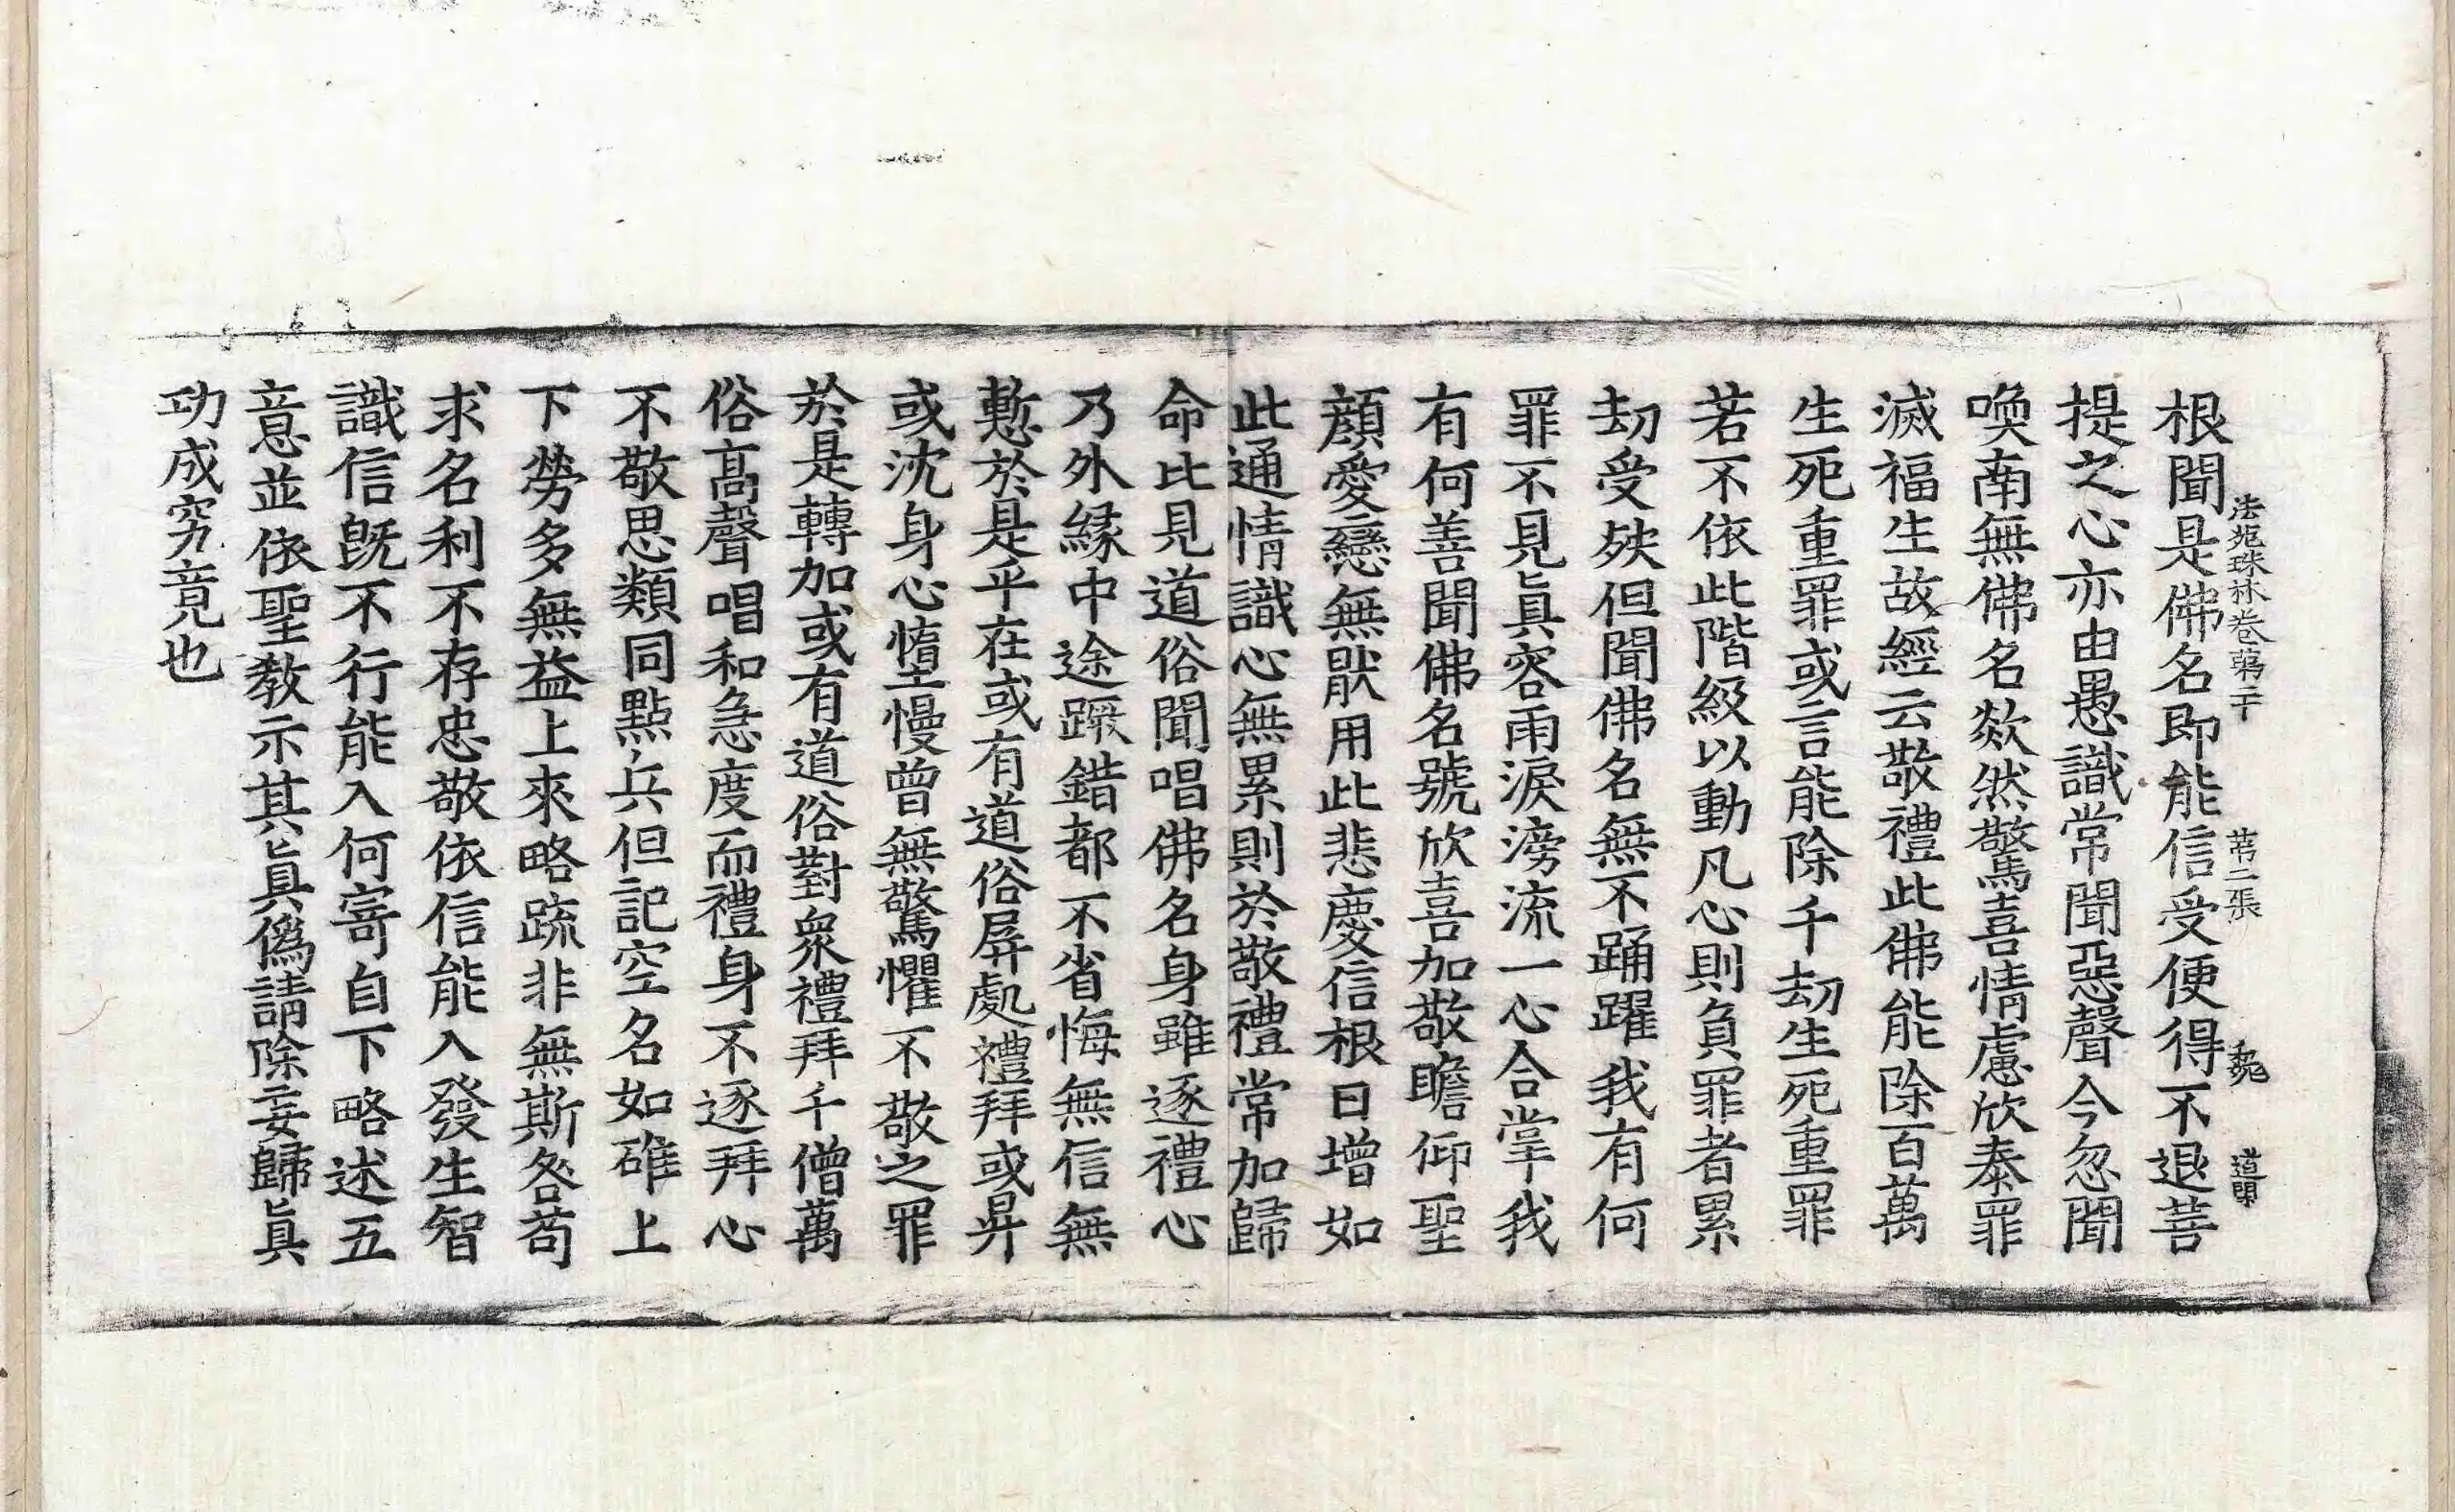 法苑珠林卷第二十 第二張 覣 道閑
根聞是佛名即能信受便得不退菩
提之心亦由愚識常聞惡聲今忽聞
喚南無佛名欻然驚喜情慮欣泰罪
滅福生故經云敬禮此佛能除百萬
生死重罪或言能除千劫生死重罪
若不依此階級以動凡心則負罪者累
劫受殃但聞佛名無不踊躍我有何
罪不見眞容雨淚滂流一心合掌我
有何善聞佛名號欣喜加敬瞻仰聖
顏愛戀無猒用此悲慶信根日增如
此通情識心無累則於敬禮常加歸
命比見道俗聞唱佛名身雖逐禮心
乃外緣中途蹶錯都不省悔無信無
慙於是乎在或有道俗屏處禮拜或昇
或沈身心惰慢曾無驚懼不敬之罪
於是轉加或有道俗對衆禮拜千僧萬
俗高聲唱和急度而禮身不逐拜心
不敬思類同點兵但記空名如碓上
下勞多無益上來略疏非無斯咎苟
求名利不存忠敬依信能入發生智
識信旣不行能入何寄自下略述五
意並依聖敎示其眞僞請除妄歸眞
功成究竟也